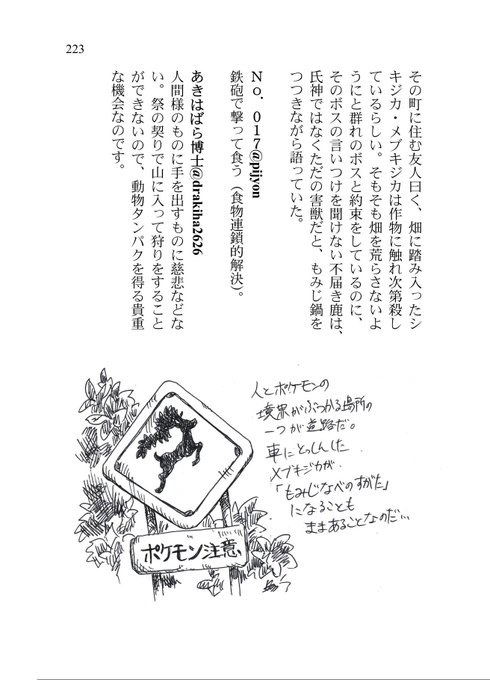 223
その町に住む友人曰く、畑に踏み入ったシ
キジカ・メブキジカは作物に触れ次第殺し
ているらしい。そもそも畑を荒らさないよ
うにと群れのボスと約束をしているのに、
そのボスの言いつけを聞けない不届き鹿は、
氏神ではなくただの害獣だと、もみじ鍋を
つつきながら語っていた。
No. 017@pijyon
鉄砲で撃って食う（食物連鎖的解決）。
あきはばら博士@drakiha2626
人間様のものに手を出すものに慈悲などな
い。祭の契りで山に入って狩りをすること
ができないので、動物タンパクを得る貴重
な機会なのです。
人とポケモンの
境界がぶつかる場所の
一つが道路だ。
車にとっしんした
メブキジカが
「もみじなべのすがた」
になることも
ままあることなのだ…
ポケモン注意